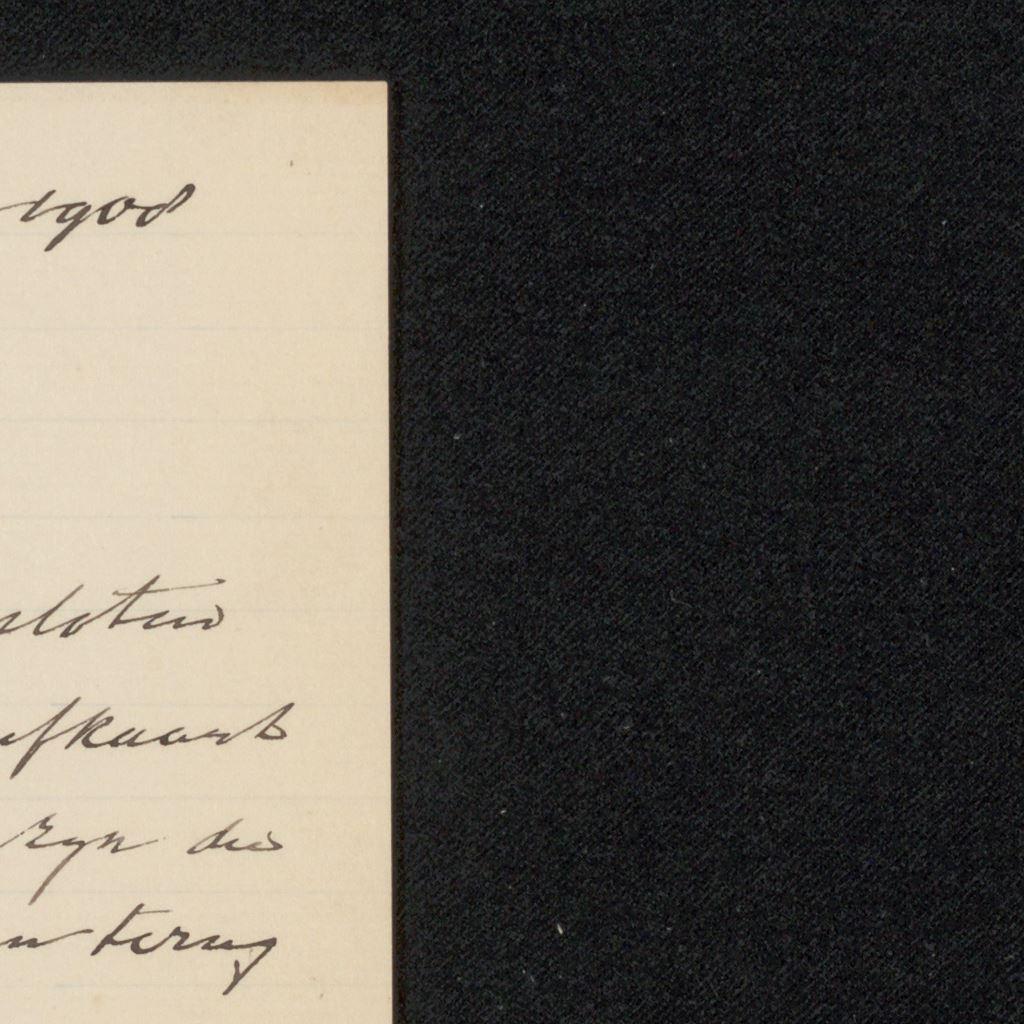 1908
sloten
efkaart
zyn die
en terug